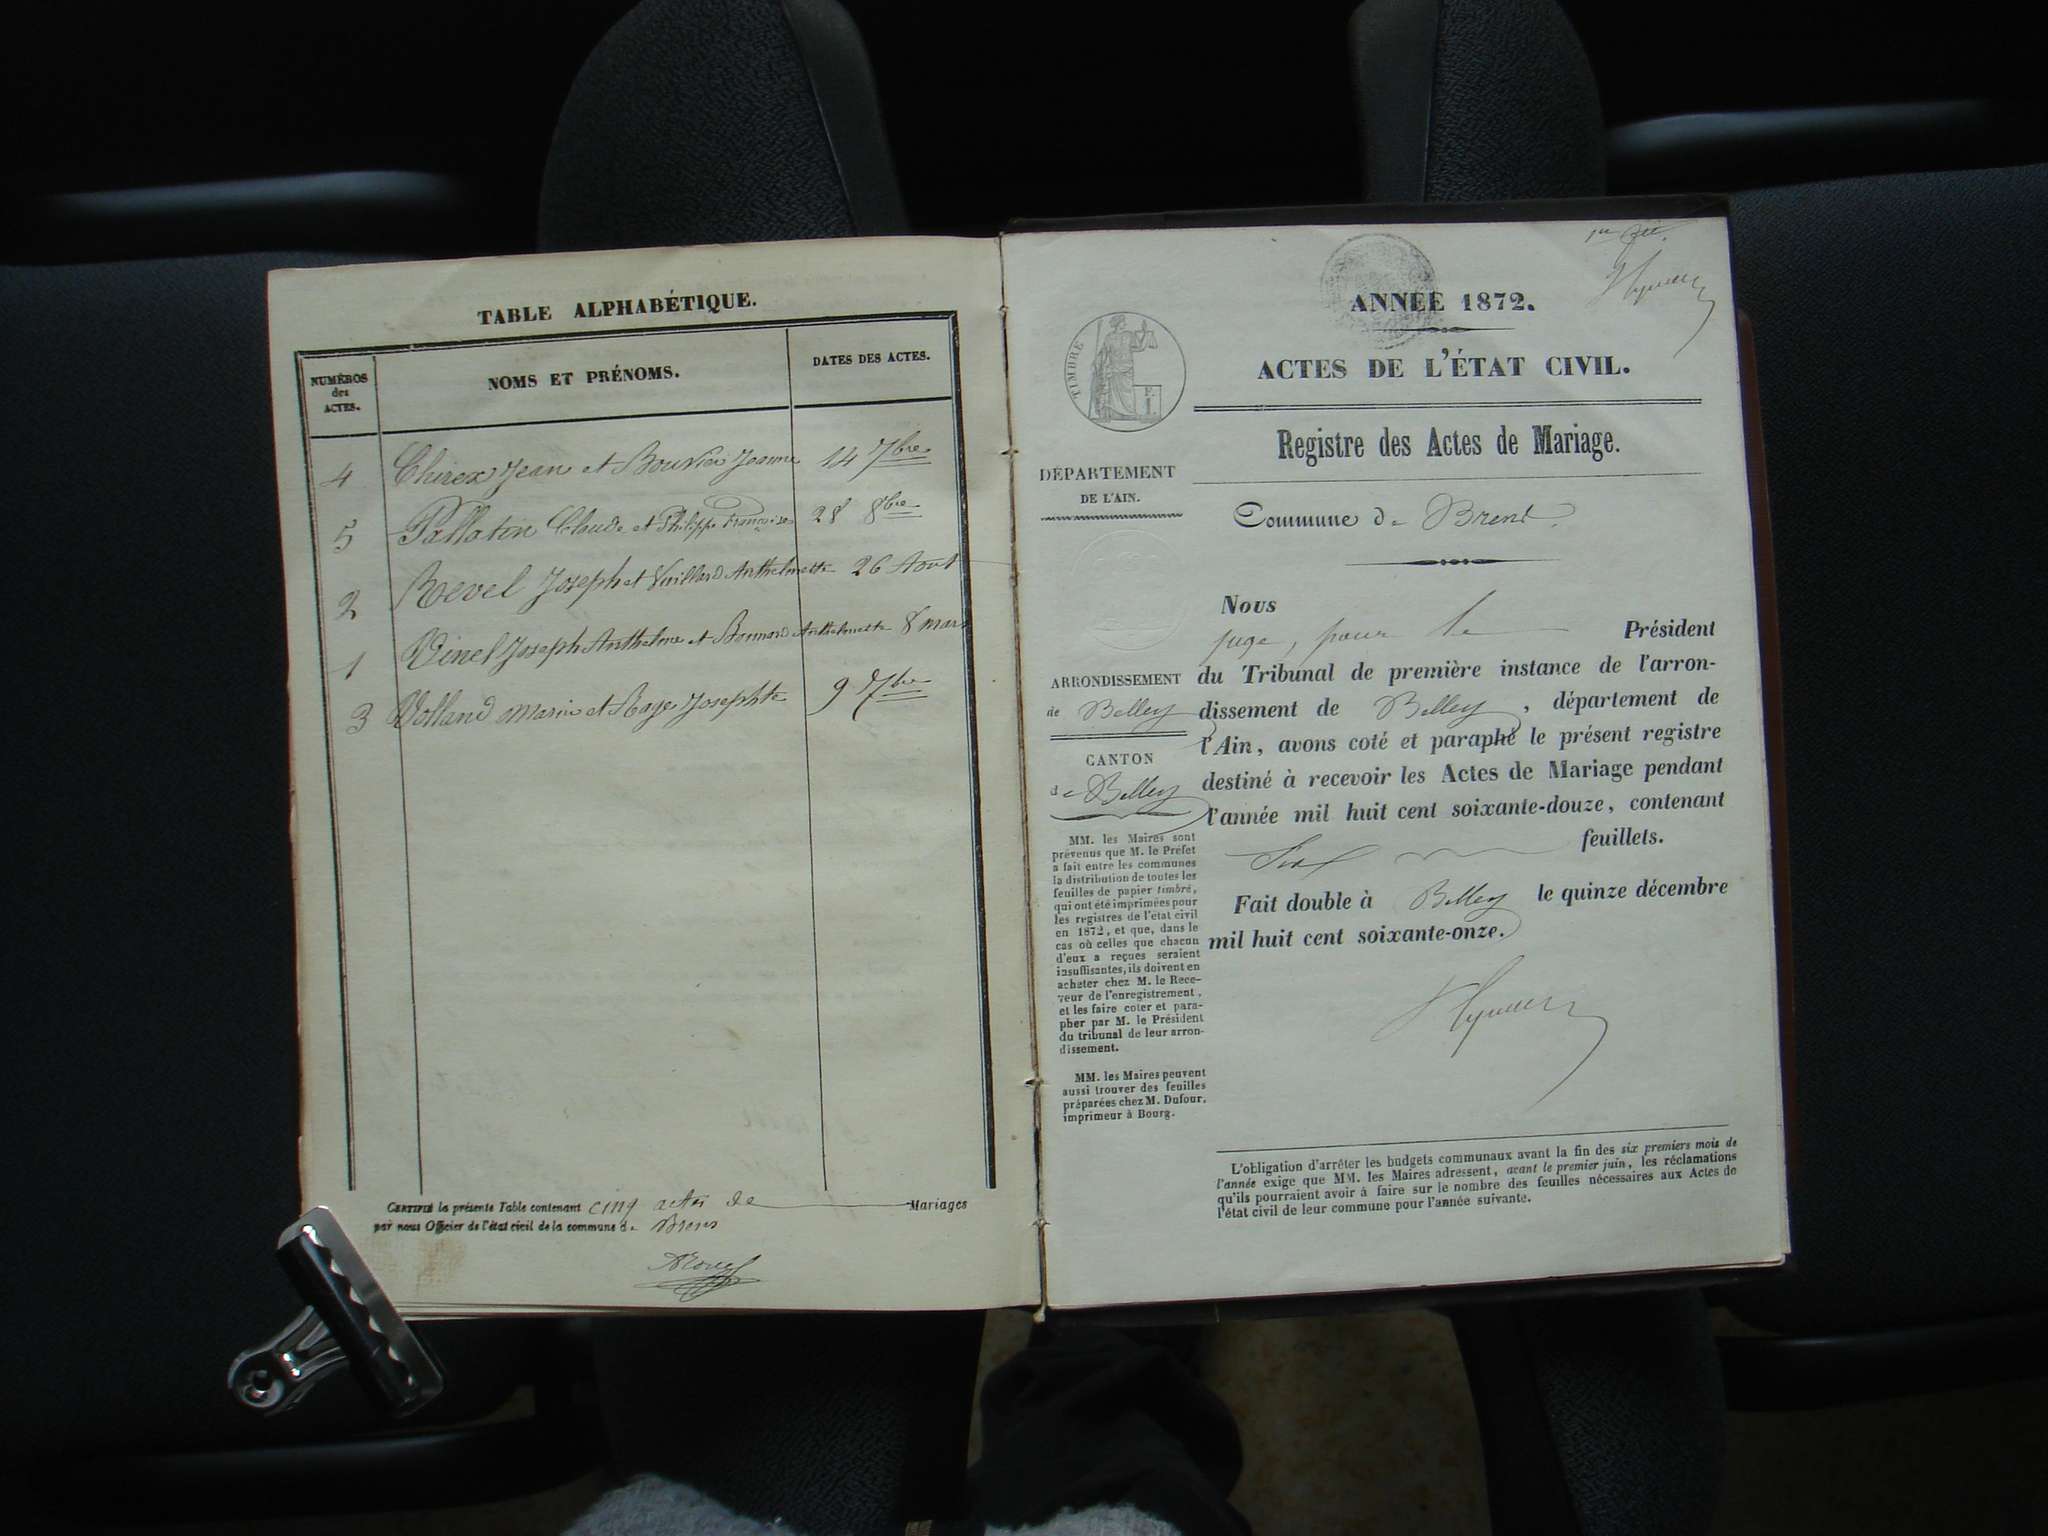 TABLE ALPHABÉTIQUE.
NUMÉROS
des
ACTES.
NOMS ET PRÉNOMS.
DATES DES ACTES.
4 Chirex Jean et Bouvier Jeanne 14 7bre
5 Pallatin Claude et Philippe Françoise 28 8bre
2 Revel Joseph et Vuillard Anthelmette 26 Aout
1 Vinel Joseph Anthelme et Bonnard Anthelmette 8 mars
3 Volland Marin et Josephte 9 7bre
CERTIFIÉ la présente Table contenant cinq actes de Mariages
par nous Officier de l'état civil de la commune de Brens
ANNÉE 1872.
ACTES DE L'ÉTAT CIVIL.
Registre des Actes de Mariage.
TIMBRE
DÉPARTEMENT
DE L'AIN.
Commune de Brens.
ARRONDISSEMENT
de Belley
CANTON
de Belley
MM. les Maires sont
prévenus que M. le Préfet
a fait entre les communes
la distribution de toutes les
feuilles de papier timbré,
qui ont été imprimées pour
les registres de l'état civil
en 1872, et que, dans le
cas où celles que chacun
d'eux a reçues seraient
insuffisantes, ils doivent en
acheter chez M. le Rece-
veur de l'enregistrement,
et les faire coter et para-
pher par M. le Président
du tribunal de leur arron-
dissement.
MM. les Maires peuvent
aussi trouver des feuilles
préparées chez M. Dufour,
imprimeur à Bourg.
Nous
juge, pour le Président
du Tribunal de première instance de l'arron-
dissement de Belley, département de
l'Ain, avons coté et paraphé le présent registre
destiné à recevoir les Actes de Mariage pendant
l'année mil huit cent soixante-douze, contenant
Six feuillets.
Fait double à Belley le quinze décembre
mil huit cent soixante-onze.
L'obligation d'arrêter les budgets communaux avant la fin des six premiers mois de
l'année exige que MM. les Maires adressent, avant le premier juin, les réclamations
qu'ils pourraient avoir à faire sur le nombre des feuilles nécessaires aux Actes de
l'état civil de leur commune pour l'année suivante.